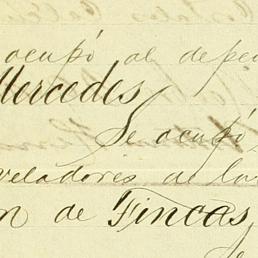 ocupó al depen
Mercedes
Se ocupó,
veladores de la
n de Fincas
Se